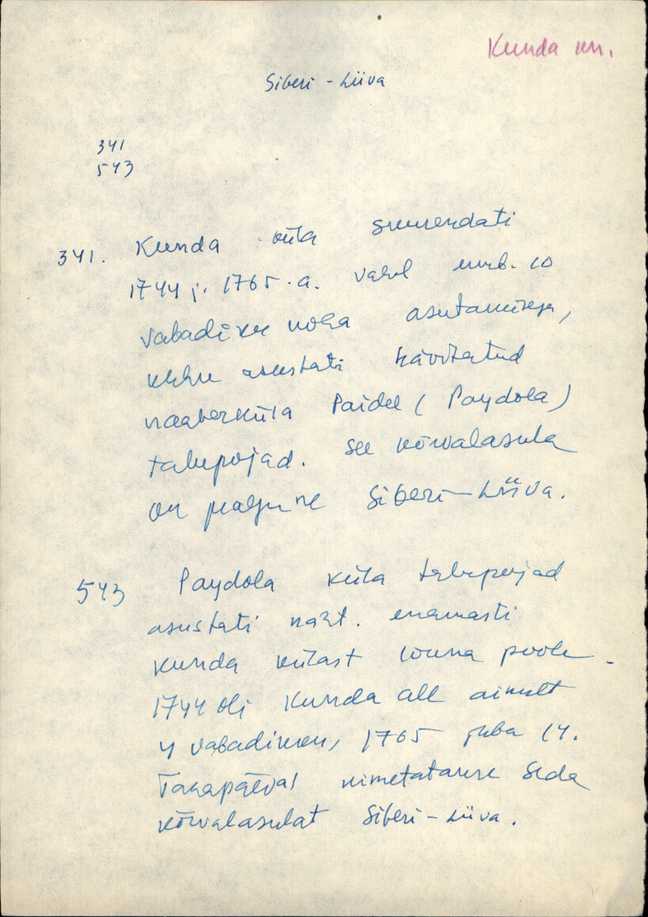 Kunda mn.
Siberi - Liiva
341
543
341. Kunda küla suurendati
1744 j. 1765. a. vahel umb. 10
vabadiku koha asutamisega,
kuhu asustati hävitatud
naaberküla Paidel (Paydola)
talupojad. See kõrvalasula
on praegune Siberi-Liiva.
543 Paydola küla talupojad
asustati enamasti
Kunda külast lõuna poole.
1744 oli Kunda all ainult
4 vabadikku, 1765 juba 14.
Tänapäeval nimetatakse seda
kõrvalasulat Siberi-Liiva.